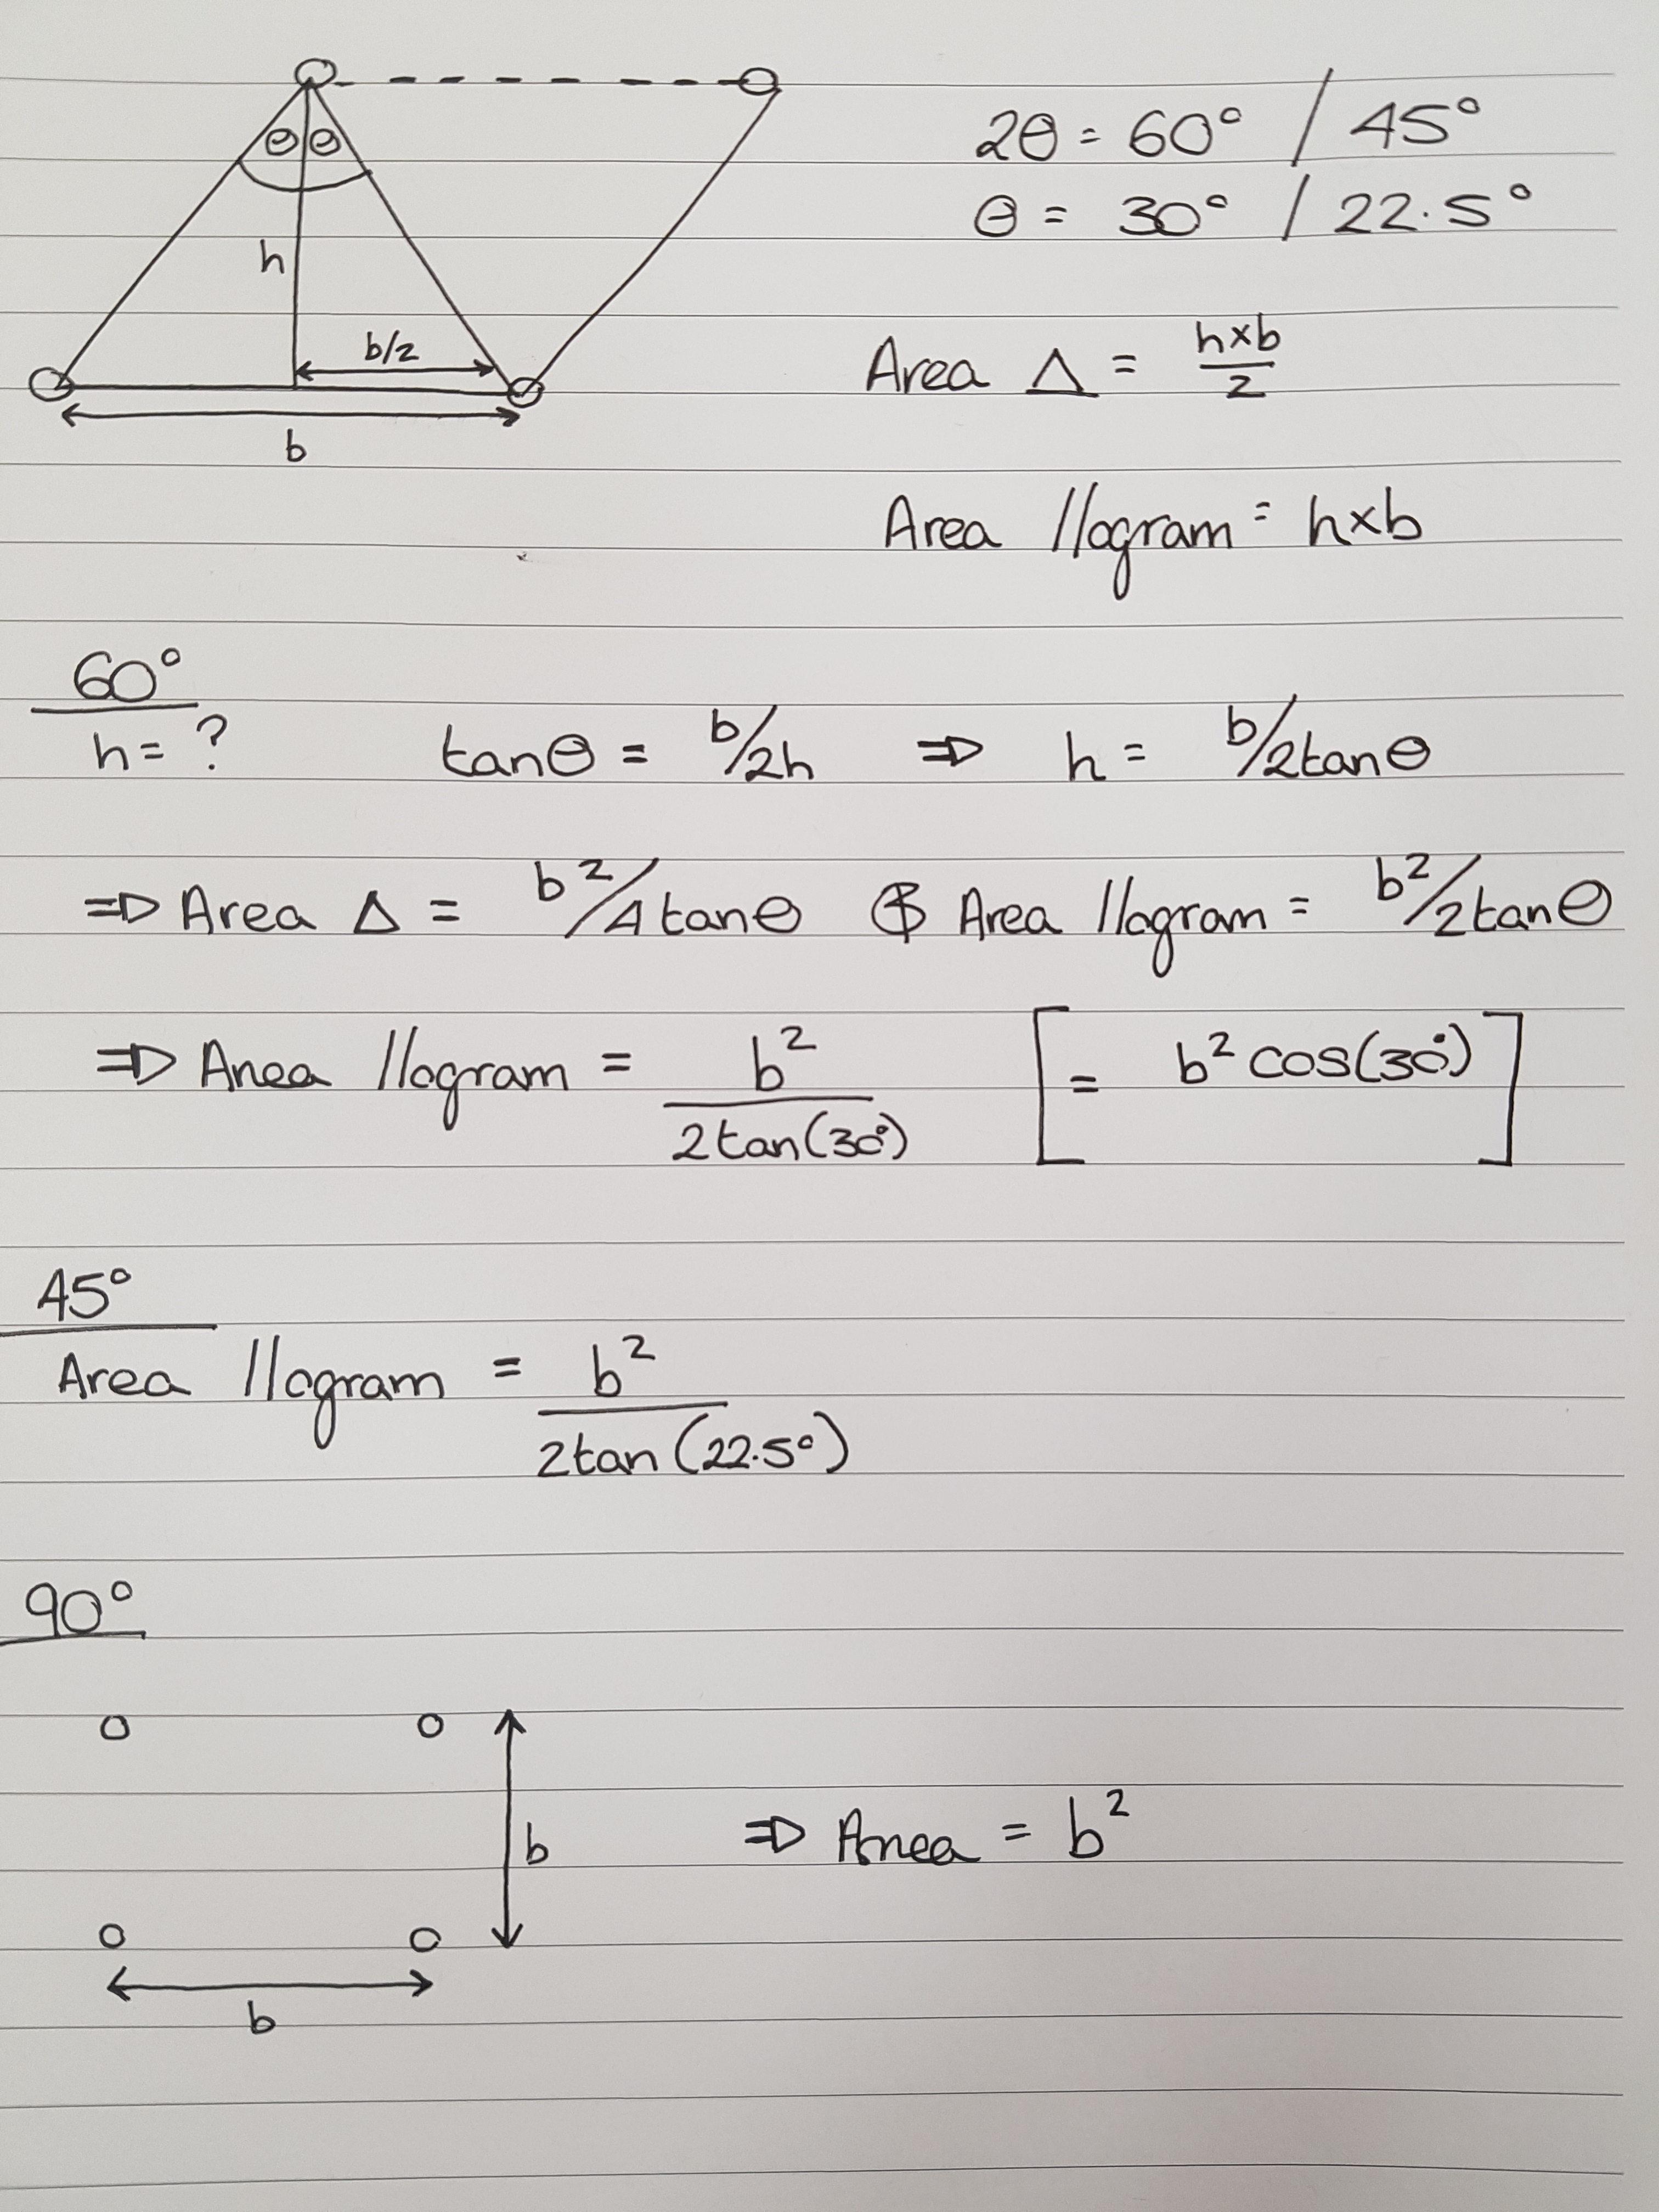 θ θ
h
b/2
b
2θ = 60° / 45°
θ = 30° / 22.5°
Area Δ = h×b/2
Area //ogram = h×b
60°
h = ? tanθ = b/2h ⇒ h = b/2tanθ
⇒ Area Δ = b²/4tanθ & Area //ogram = b²/2tanθ
⇒ Area //ogram = b²/2tan(30°) [= b² cos(30°)]
45°
Area //ogram = b²/2tan(22.5°)
90°
b ⇒ Area = b²
b